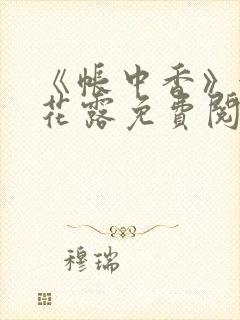 《帐中香》
花露免费阅
穆瑞